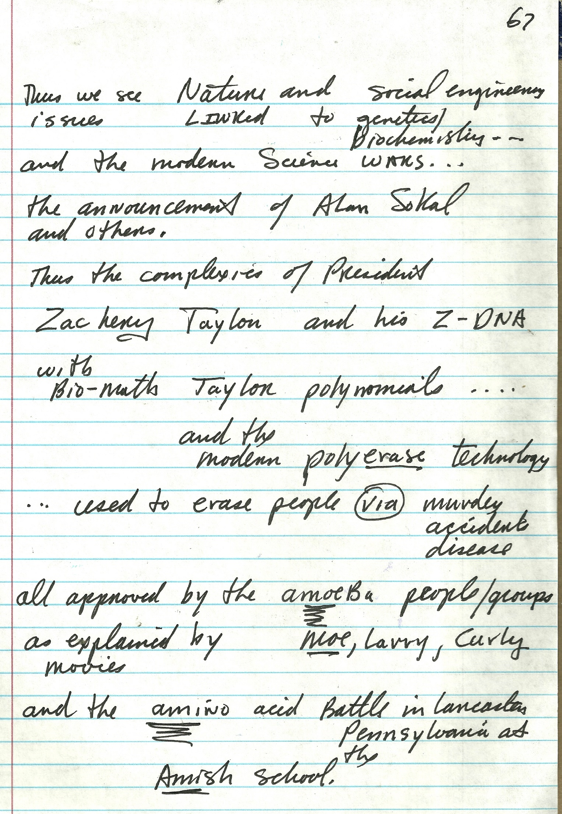 67
Thus we see Nature and social engineering
issues LINKed to genetics/
Biochemistry --
and the modern Science WARS...
the announcement of Alan Sokal
and others.
Thus the complexies of President
Zachery Taylor and his Z-DNA
with
Bio-math Taylor polynomials .....
and the
modern polyerase technology
... used to erase people via murder
accidents
disease
all approved by the amoeBa people/groups
as explained by Moe, Larry, Curly
movies
and the amino acid Battle in Lancaster
Pennsylvania at
the
Amish school.